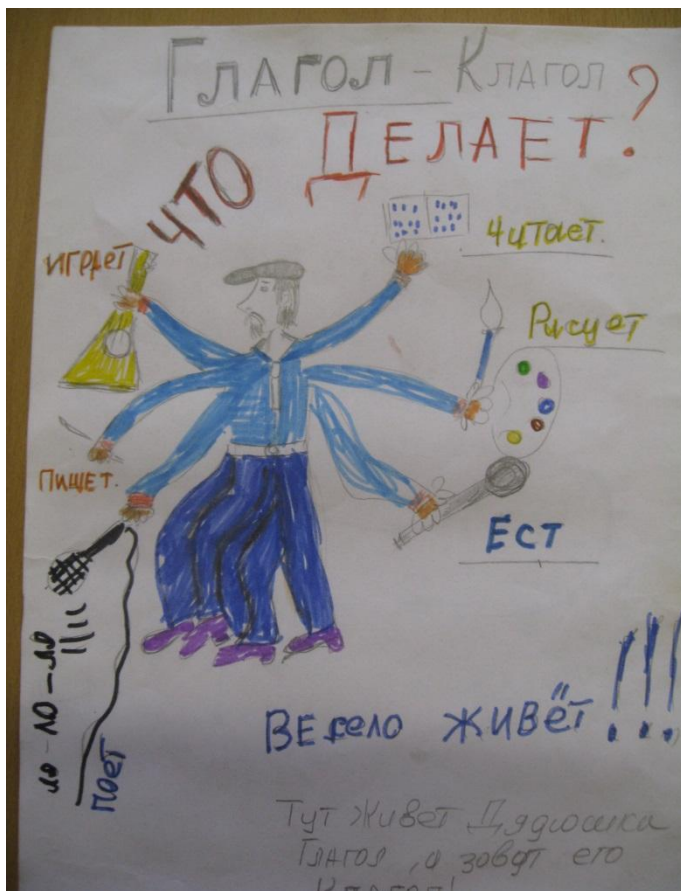 Глагол - Клагол
Что Делает?
играет
Читает.
Рисует
Пишет.
Ест
ло-ло-ло
поёт
Весело живёт!!!
Тут живет Дядюшка
Глагол, и зовут его
Клагол!